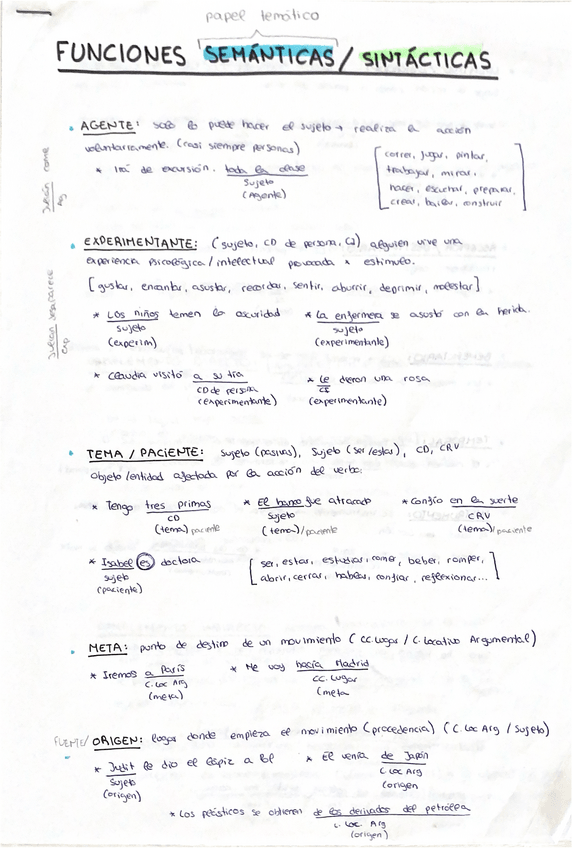 papel temático
FUNCIONES SEMÁNTICAS / SINTÁCTICAS
• AGENTE: solo lo puede hacer el sujeto → realiza la acción
voluntariamente. (casi siempre personas)
* Irá de excursión toda la clase
Sujeto
(Agente)
[correr, jugar, pintar,
trabajar, mirar,
hacer, escuchar, preparar,
crear, bailar, construir]
Julián come
Ag
• EXPERIMENTANTE: (sujeto, CD de persona, CI) alguien vive una
experiencia psicológica / intelectual provocada x estímulo.
[gustar, encantar, asustar, recordar, sentir, aburrir, deprimir, molestar]
Julián desaparece
Exp
* Los niños temen la oscuridad
sujeto
(experim)
* La enfermera se asustó con la herida.
sujeto
(experimentante)
* Claudia visitó a su tía
CD de persona
(experimentante)
* Le dieron una rosa
(experimentante)
• TEMA / PACIENTE: Sujeto (pasivas), Sujeto (ser/estar), CD, CRV
Objeto/entidad afectada por la acción del verbo.
* Tengo tres primas
CD
(tema) paciente
* El banco fue atracado
Sujeto
(tema)/paciente
* Confío en la suerte
CRV
(tema)/paciente
* Isabel es doctora
sujeto
(paciente)
[ser, estar, estudiar, comer, beber, romper,
abrir, cerrar, hablar, confiar, reflexionar...]
• META: punto de destino de un movimiento (CC. Lugar / C. Locativo Argumental)
* Iremos a París
C. Loc Arg
(meta)
* Me voy hacia Madrid
CC. Lugar
(meta
FUENTE/ ORIGEN: lugar donde empieza el movimiento (procedencia) (C. Loc Arg / Sujeto)
* Judit le dio el lápiz a Pol
Sujeto
(origen)
* Él venía de Japón
C. Loc Arg
(origen
* Los plásticos se obtienen de los derivados del petróleo
C. Loc. Arg
(origen)